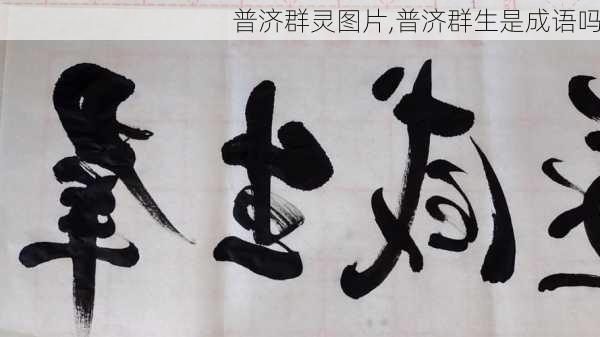 普济群灵图片,普济群生是成语吗
羣生